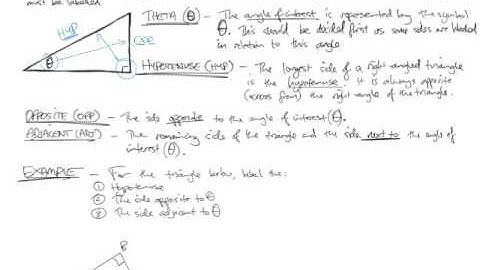 must be labelled
HYP
OPP
θ
THETA (θ) – The angle of interest is represented by the symbol
θ. This should be decided first as some sides are labelled
in relation to this angle
HYPOTENUSE (HYP) – The longest side of a right angled triangle
is the hypotenuse. It is always opposite
(across from) the right angle of the triangle.
OPPOSITE (OPP) – The side opposite to the angle of interest (θ).
ADJACENT (ADJ) – The remaining side of the triangle and the side next to the angle of
interest (θ).
EXAMPLE – For the triangle below, label the:
① Hypotenuse
② The side opposite to θ
③ The side adjacent to θ
B